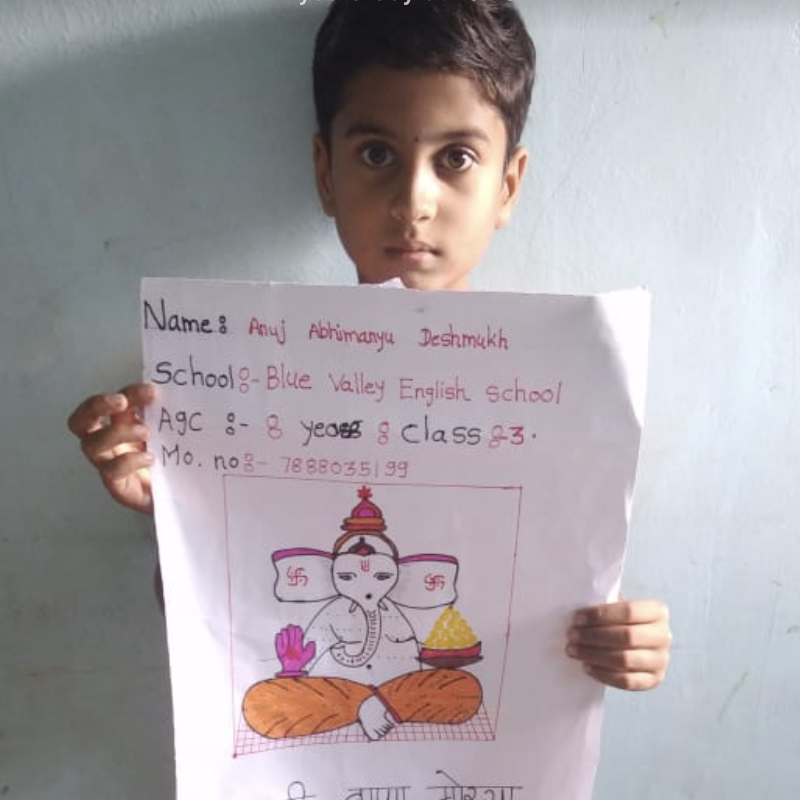 Name: Anuj Abhimanyu Deshmukh
School:- Blue Valley English School
Age :- 8 years : class :-3.
Mo. no :- 7888035199
बाप्पा मोरया